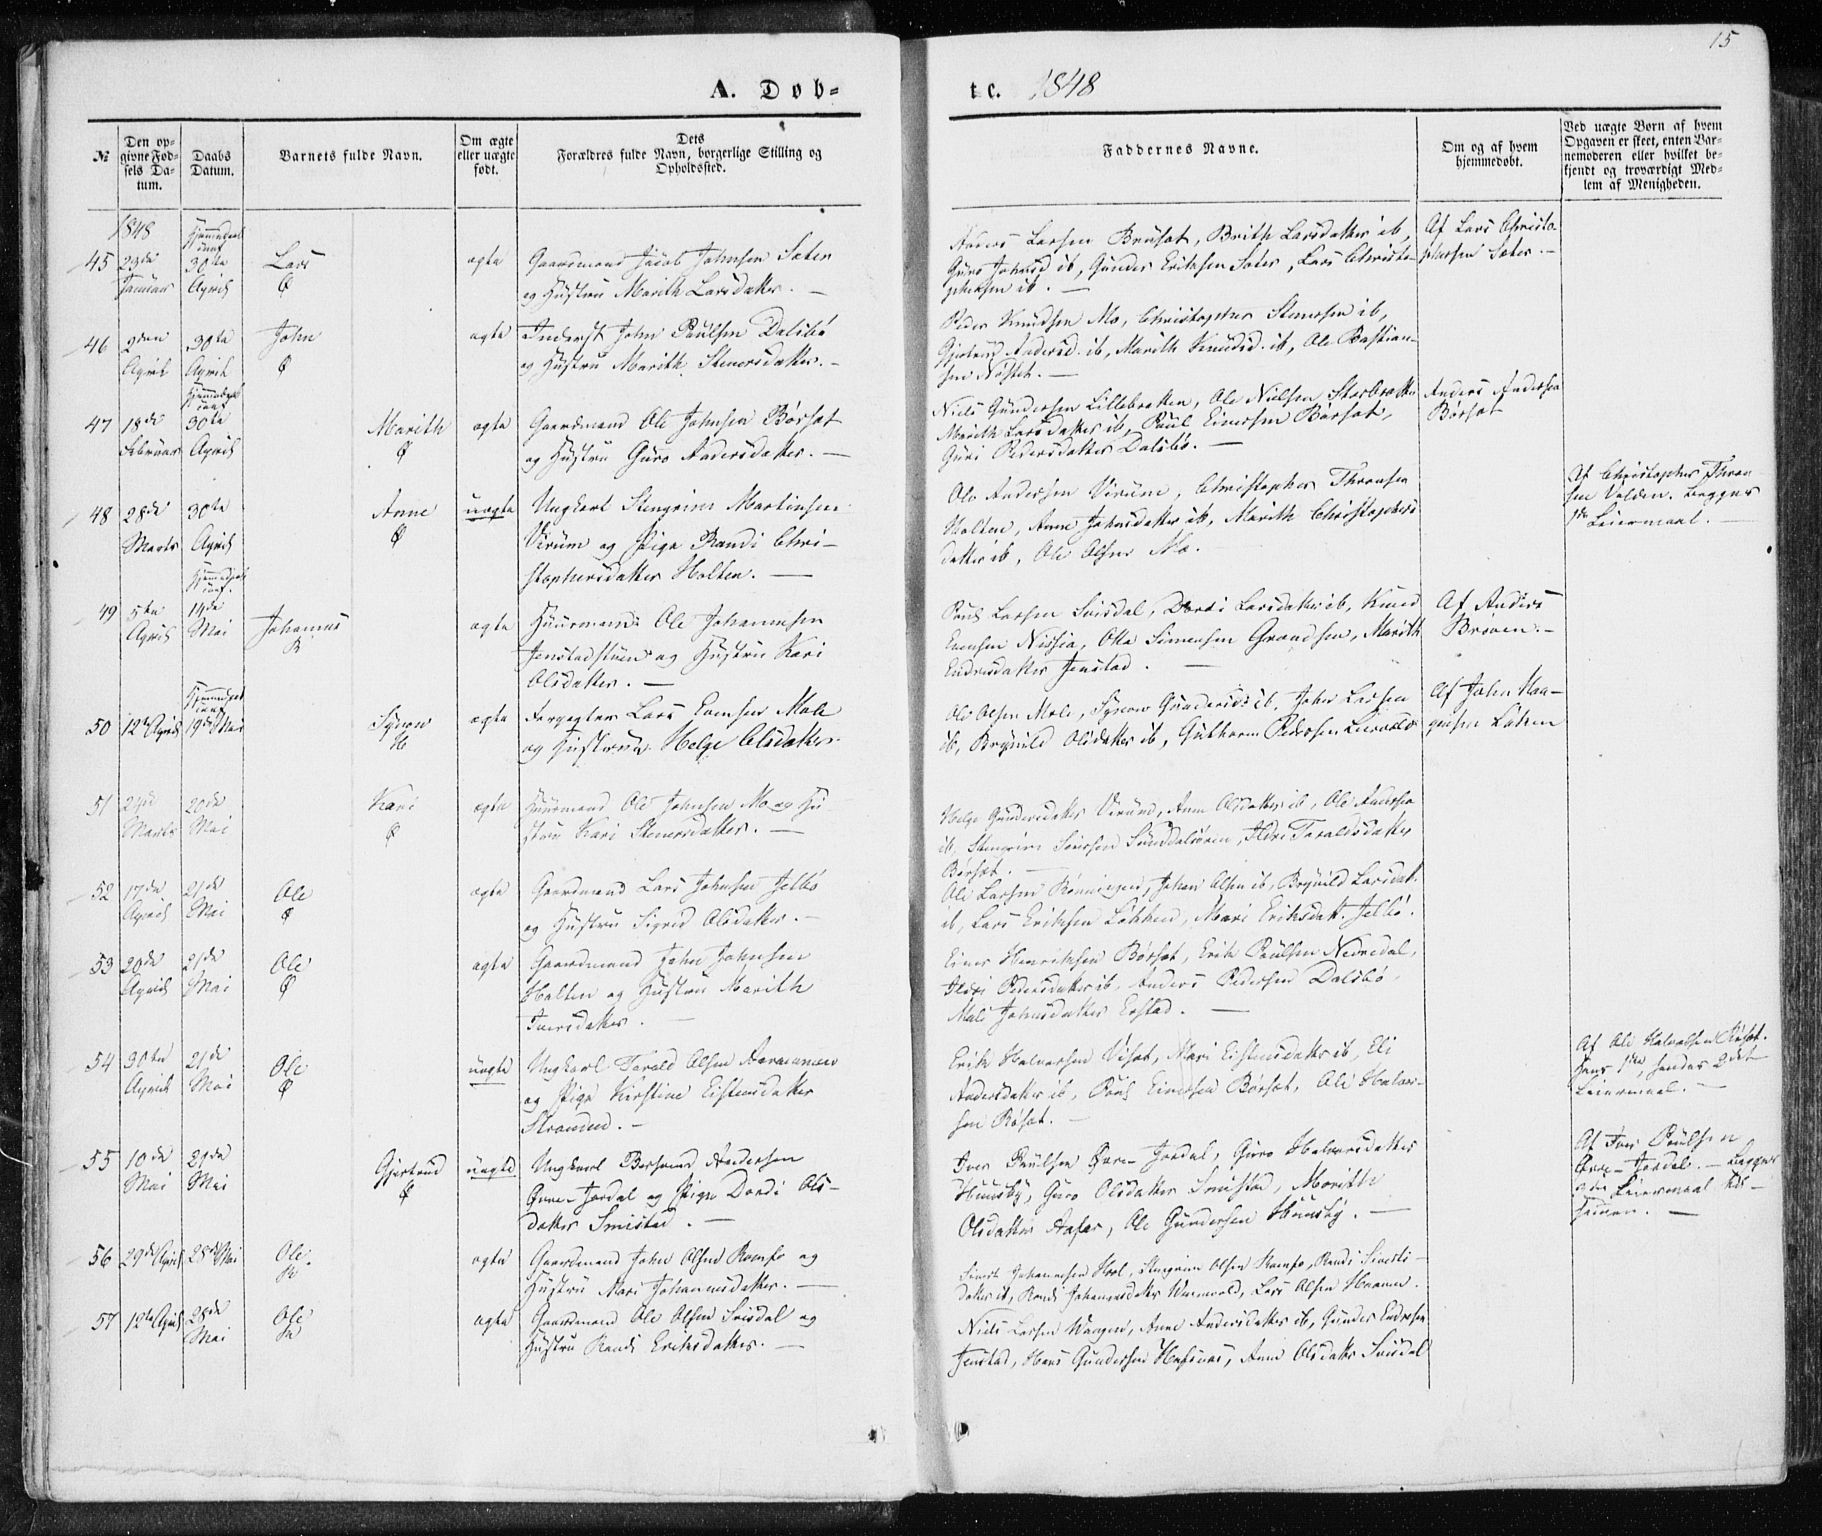 15
A. Døb-
te. 1848
№
Den op-
givne Fød-
sels Da-
tum.
Daabs
Datum.
Barnets fulde Navn.
Om ægte
eller uægte
født.
Dets
Forældres fulde Navn, borgerlige Stilling og
Opholdssted.
Faddernes Navne.
Om og af hvem
hjemmedøbt.
Ved uægte Børn af hvem
Opgaven er skeet, enten Bar-
nemoderen eller hvilket be-
kjendt og troværdigt Med-
lem af Menigheden.
1848
45 23de Januar 30te April Lars ægte
Gaardmand Jacob Johnsen Sæter
og Hustru Marith Larsdatter. —
Anders Larsen Brusæt, Brith Larsdatter ib,
Guro Johnsd ib, Gunder Eriksen Sæter, Lars Christo-
phersen ib. —
Af Lars Christo-
phersen Sæter. —
46 2den April 30te April John ægte
Inderst John Paulsen Dalsbø
og Hustru Marith Stenersdatter. —
Peder Knudsen Mo, Christopher Stenersen ib,
Gjertrud Andersd. ib, Marith Knudsd. ib, Ole Bastian-
sen Nøstet. —
47 18de Februar 30te April Marith ægte
Gaardmand Ole Johnsen Børsæt
og Hustru Guro Andersdatter. —
Niels Gundersen Lillebrekken, Ole Nielsen Storbrekken
Marith Larsdatter ib, Paul Einersen Børsæt,
Guri Pedersdatter Dalsbø. —
Anders Andersen
Børsæt
48 28de Marts 30te April Anne uægte
Ungkarl Stengrim Martinsen
Virum og Pige Randi Chri-
stophersdatter Holten. —
Ole Andersen Virum, Christopher Thronsen
Holten, Anne Johnsdatter ib, Marith Christophers-
datter ib, Ole Olsen Mo.
Af Christopher Thron-
sen Volden. Begges
1ste Leiermaal. —
49 5te April 14de Mai Johannes ægte
Huusmand Ole Johannesen
Jenstadstuen og Hustru Kari
Olsdatter. —
Poul Larsen Svisdal, Dordi Larsdatter ib, Knud
Evensen Nisja, Otte Simensen Grøndsen, Marith
Endresdatter Jenstad. —
Af Anders
Brøven. —
50 12te April 19de Mai Synow ægte
Forpagter Lars Evensen Mæle
og Hustrue Helge Olsdatter
Ole Olsen Mæle, Synow Gundersd: ib, John Larsen
ib, Brynild Olsdatter ib, Guttorm Pedersen Lirvold
Af John Haa-
gensen Løken
51 24de Marts 20de Mai Kari ægte
Huusmand Ole Johnsen Mo og Hu-
stru Kari Stenersdatter. —
Helge Gundersdatter Virum, Anne Olsdatter ib, Ole Andersen
ib, Stengrim Sivertsen Sunddalsøren, Ildri Taraldsdatter
Børsæt. —
52 17de April 21de Mai Ole ægte
Gaardmand Lars Johnsen Jelbø
og Hustru Sigrid Olsdatter. —
Ole Larsen Rønningen, Johan Olsen ib, Brynild Larsdat.
ib, Lars Eriksen Løkken, Mari Eriksdatt. Jelbø.
53 20de April 21de Mai Ole ægte
Gaardmand John Johnsen
Holten og Hustru Marith
Iversdatter. —
Einer Henriksen Børsæt, Erik Paulsen Nedredal,
Ildri Pedersdatter ib, Anders Pedersen Dalsbø
Mali Johnsdatter Erstad. —
54 30te April 21de Mai Ole uægte
Ungkarl Tarald Olsen
og Pige Kirstine Eistensdatter
Stranden. —
Erik Halvorsen Viset, Mari Eistensdatter ib, Eli
Andersdatter ib, Paul Einersen Børsæt, Ole Halvor-
sen Røsæt. —
Af Ole Halvorsen Røsæt.
Hans 1ste, hendes 2det
Leiermaal. —
55 10de Mai 21de Mai Gjertrud uægte
Ungkarl Andersen
Øvre-Jordal og Pige Dordi Ols-
datter Smistad. —
Iver Paulsen Øvre-Jordal, Guro Halvorsdatter
Huusby, Guro Olsdatter Smistad, Marith
Olsdatter, Ole Gundersen Huusby. —
Af Iver Paulsen
Øvre-Jordal. — Begges
Leiermaal til-
sammen. —
56 29de April 28de Mai Ole ægte
Gaardmand John Olsen Romfo og
Hustru Mari Johannesdatter. —
Sivert Johannesen Hoel, Stengrim Olsen Romfo, Randi Siverts-
datter ib, Randi Johannesdatter Warmvold, Lars Olsen Haaven.
57 12te April 28de Mai Ole ægte
Gaardmand Ole Olsen Svisdal og
Hustru Randi Eriksdatter. —
Niels Larsen Wangen, Anne Andersdatter ib, Gunder Endresen
Jenstad, Hans Gundersen Hafsaas, Anne Olsdatter Svisdal